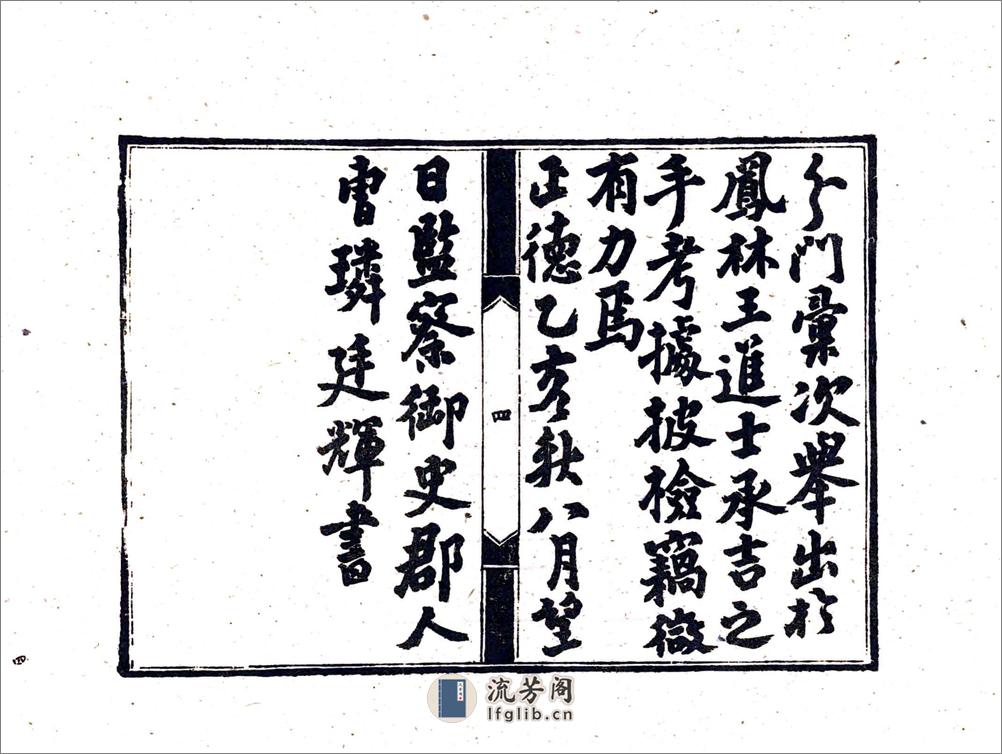 分門彙次舉出於
鳳林王進士承吉之
手考據披檢竊微
有力焉
正德乙亥秋八月望
四
日監察御史郡人
曹璘廷輝書
四
流芳阁
lfglib.cn